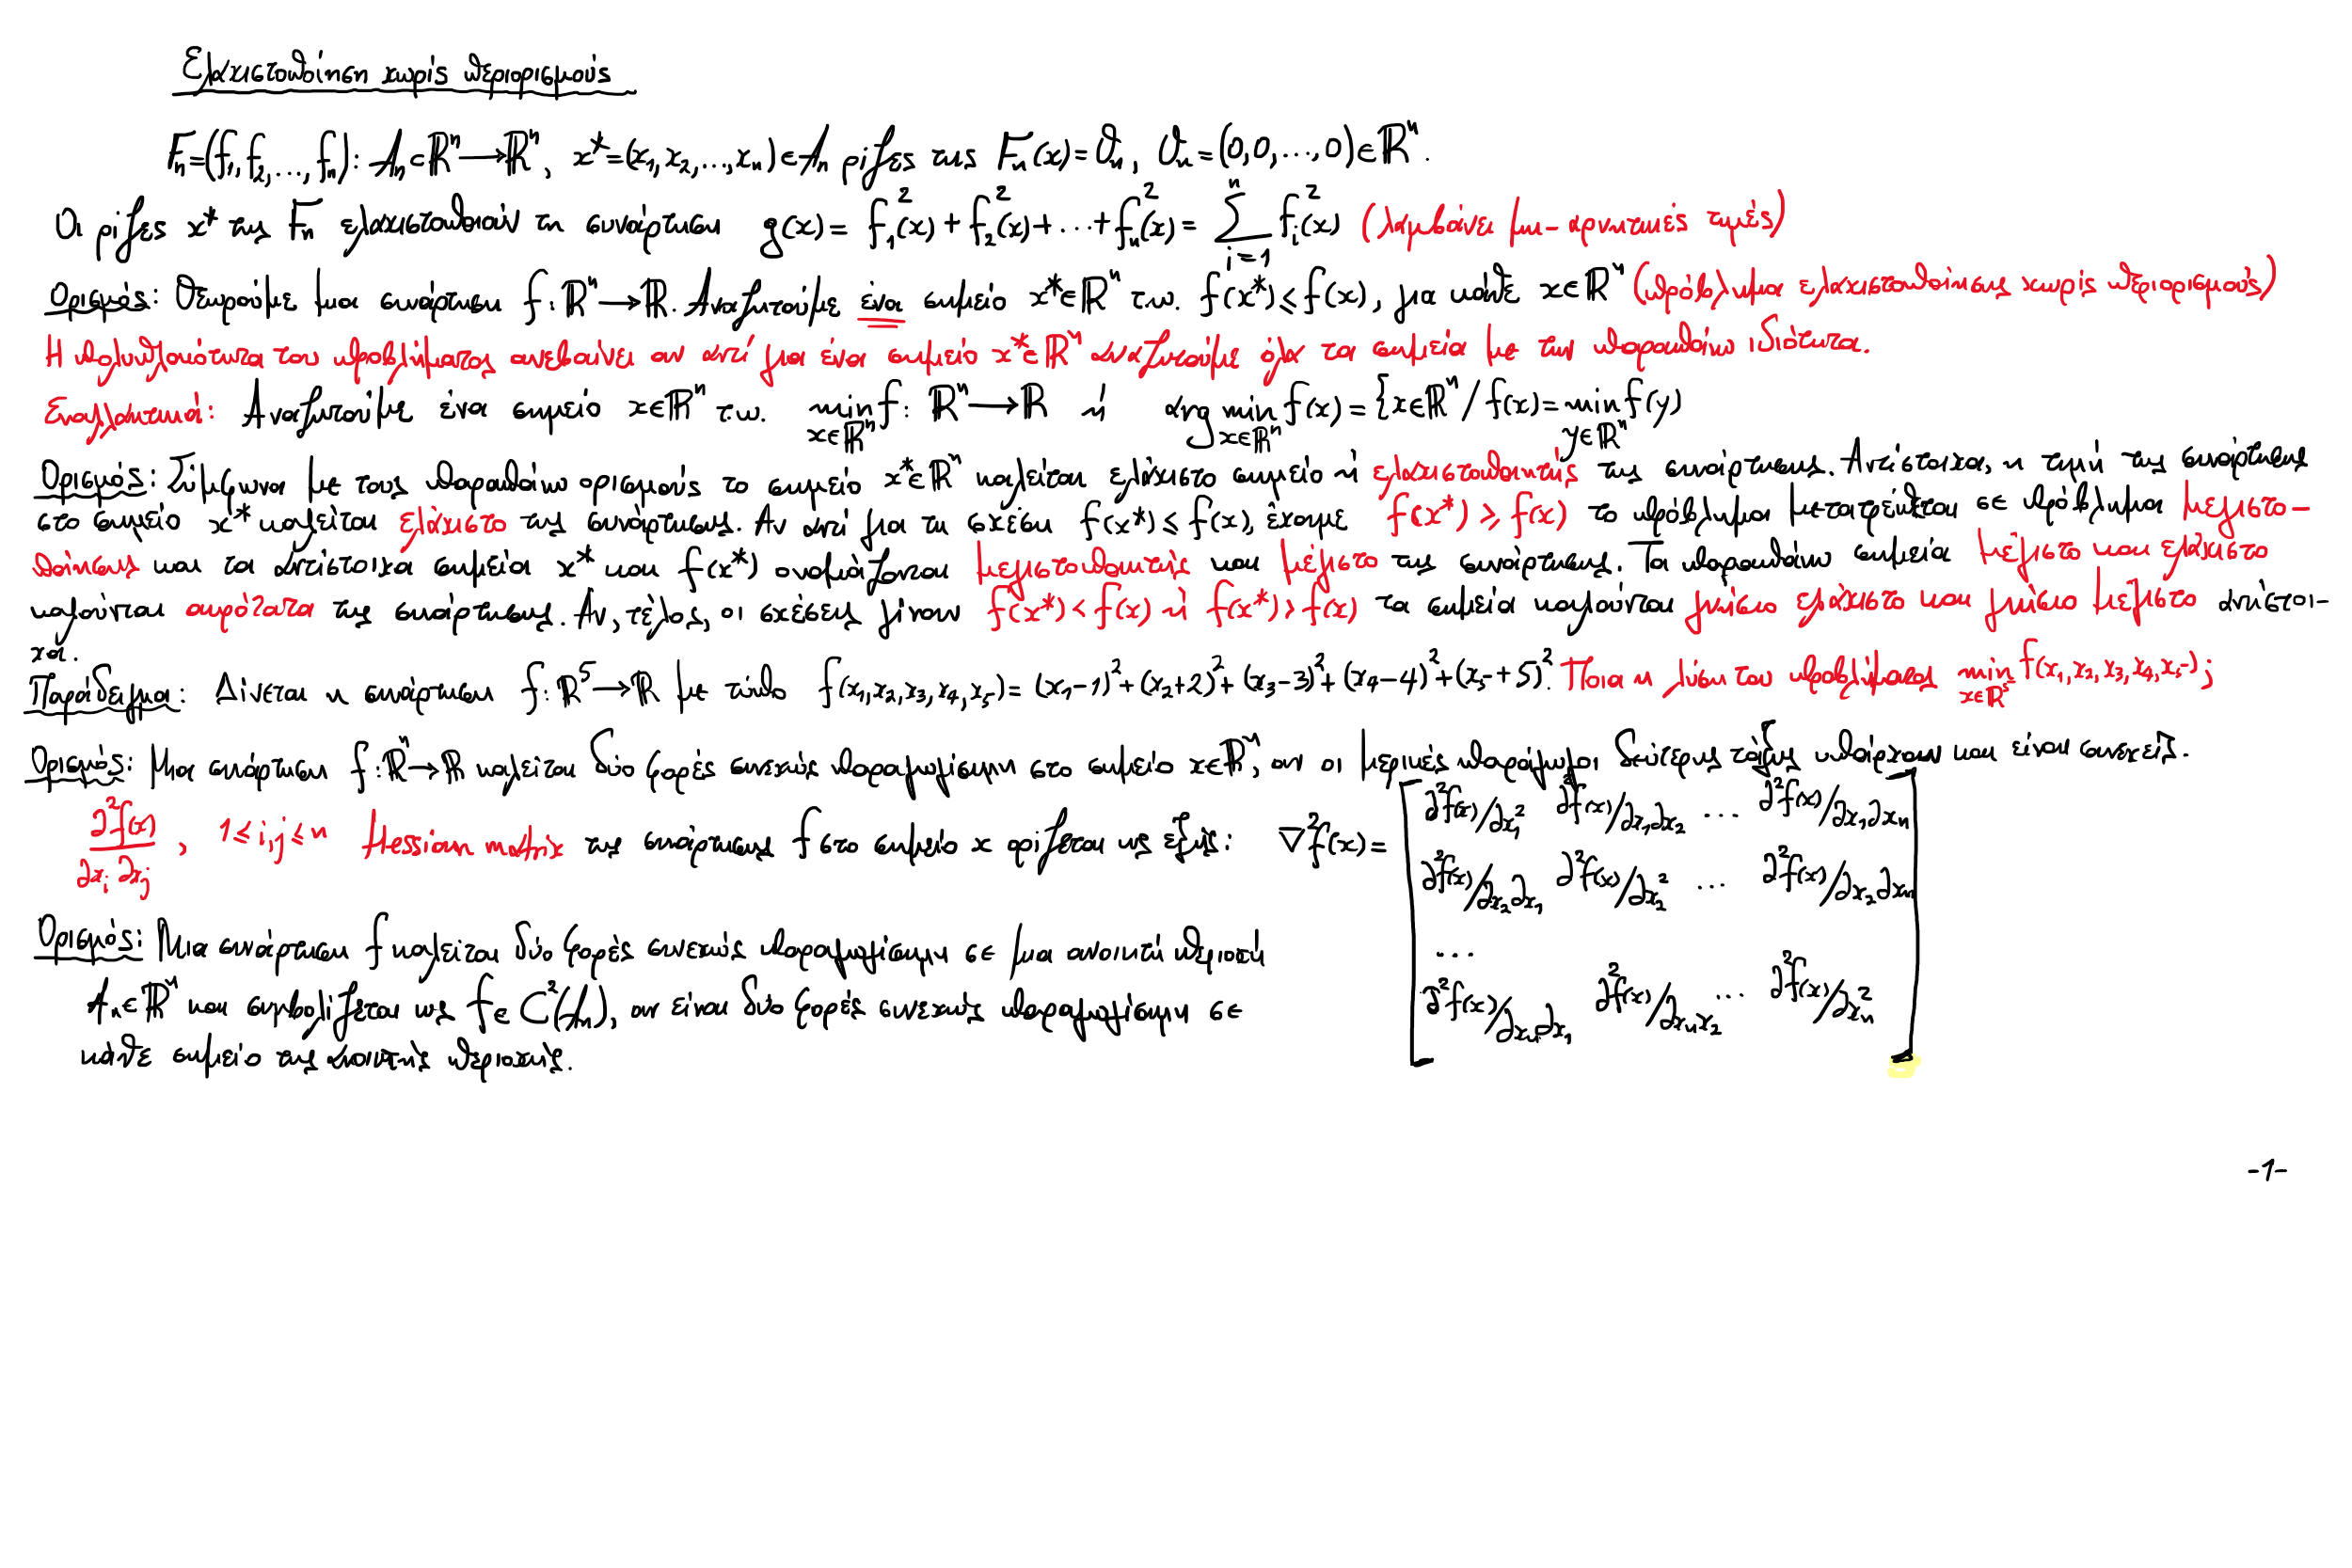 Ελαχιστοποίηση χωρίς περιορισμούς
Fₙ=(f₁,f₂,...,fₙ): Aₙ⊂ℝⁿ⟶ℝⁿ, x*=(x₁,x₂,...,xₙ)∈Aₙ ρίζες της Fₙ(x)=𝒪ₙ, 𝒪ₙ=(0,0,...,0)∈ℝⁿ.
Οι ρίζες x* της Fₙ ελαχιστοποιούν τη συνάρτηση g(x)= f₁²(x)+f₂²(x)+...+fₙ²(x)= ∑ᵢ₌₁ⁿ fᵢ²(x) (λαμβάνει μη-αρνητικές τιμές)
Ορισμός: Θεωρούμε μια συνάρτηση f:ℝⁿ⟶ℝ. Αναζητούμε ένα σημείο x*∈ℝⁿ τ.ω. f(x*)≤f(x), για κάθε x∈ℝⁿ (πρόβλημα ελαχιστοποίησης χωρίς περιορισμούς)
Η πολυπλοκότητα του προβλήματος ανεβαίνει αν αντί για ένα σημείο x*∈ℝⁿ αναζητούμε όλα τα σημεία με την παραπάνω ιδιότητα.
Εναλλακτικά: Αναζητούμε ένα σημείο x∈ℝⁿ τ.ω. min_{x∈ℝⁿ} f: ℝⁿ⟶ℝ ή arg min_{x∈ℝⁿ} f(x)={x∈ℝⁿ/f(x)=min_{y∈ℝⁿ} f(y)
Ορισμός: Σύμφωνα με τους παραπάνω ορισμούς το σημείο x*∈ℝⁿ καλείται ελάχιστο σημείο ή ελαχιστοποιητής της συνάρτησης. Αντίστοιχα, η τιμή της συνάρτησης
στο σημείο x* καλείται ελάχιστο της συνάρτησης. Αν αντί για τη σχέση f(x*)≤f(x), έχουμε f(x*)≥f(x) το πρόβλημα μετατρέπεται σε πρόβλημα μεγιστο-
ποίησης και τα αντίστοιχα σημεία x* και f(x*) ονομάζονται μεγιστοποιητής και μέγιστο της συνάρτησης. Τα παραπάνω σημεία μέγιστο και ελάχιστο
καλούνται ακρότατα της συνάρτησης. Αν, τέλος, οι σχέσεις γίνουν f(x*)<f(x) ή f(x*)>f(x) τα σημεία καλούνται γνήσιο ελάχιστο και γνήσιο μέγιστο αντίστοι-
χα.
Παράδειγμα: Δίνεται η συνάρτηση f:ℝ⁵⟶ℝ με τύπο f(x₁,x₂,x₃,x₄,x₅)=(x₁-1)²+(x₂+2)²+(x₃-3)²+(x₄-4)²+(x₅+5)². Ποια η λύση του προβλήματος min_{x∈ℝ⁵} f(x₁,x₂,x₃,x₄,x₅);
Ορισμός: Μια συνάρτηση f:ℝⁿ→ℝ καλείται δύο φορές συνεχώς παραγωγίσιμη στο σημείο x∈ℝⁿ, αν οι μερικές παράγωγοι δεύτερης τάξης υπάρχουν και είναι συνεχείς.
∂²f(x)/∂xᵢ∂xⱼ, 1≤i,j≤n Hessian matrix της συνάρτησης f στο σημείο x ορίζεται ως εξής: ∇²f(x)=
[∂²f(x)/∂x₁² ∂²f(x)/∂x₁∂x₂ ... ∂²f(x)/∂x₁∂xₙ
∂²f(x)/∂x₂∂x₁ ∂²f(x)/∂x₂² ... ∂²f(x)/∂x₂∂xₙ
...
∂²f(x)/∂xₙ∂x₁ ∂²f(x)/∂xₙx₂ ... ∂²f(x)/∂xₙ²]
Ορισμός: Μια συνάρτηση f καλείται δύο φορές συνεχώς παραγωγίσιμη σε μια ανοικτή περιοχή
Aₙ∈ℝⁿ και συμβολίζεται ως f∈C²(Aₙ), αν είναι δύο φορές συνεχώς παραγωγίσιμη σε
κάθε σημείο της ανοικτής περιοχής.
-1-